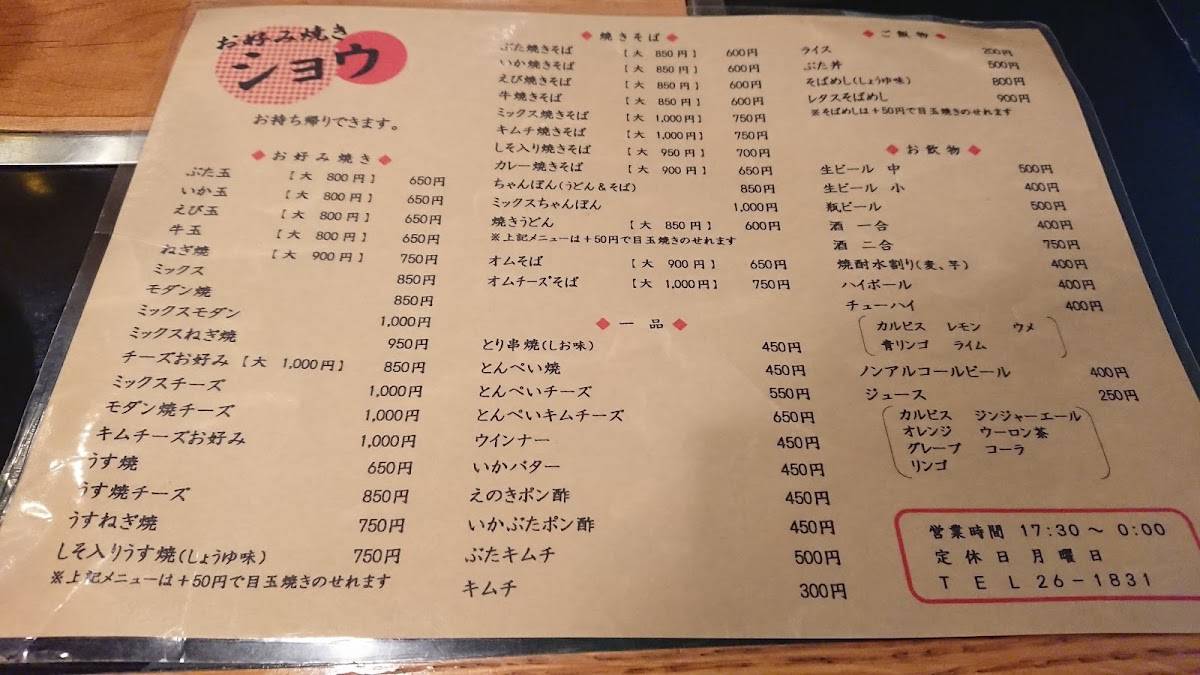 お好み焼き
ショウ
お持ち帰りできます。
◆お好み焼き◆
ぶた玉 【大 800円】 650円
いか玉 【大 800円】 650円
えび玉 【大 800円】 650円
牛玉 【大 800円】 650円
ねぎ焼 【大 900円】 750円
ミックス 850円
モダン焼 850円
ミックスモダン 1,000円
ミックスねぎ焼 950円
チーズお好み 【大 1,000円】 850円
ミックスチーズ 1,000円
モダン焼チーズ 1,000円
キムチーズお好み 1,000円
うす焼 650円
うす焼チーズ 850円
うすねぎ焼 750円
しそ入りうす焼(しょうゆ味) 750円
※上記メニューは+50円で目玉焼きのせれます
◆焼きそば◆
ぶた焼きそば 【大 850円】 600円
いか焼きそば 【大 850円】 600円
えび焼きそば 【大 850円】 600円
牛焼きそば 【大 850円】 600円
ミックス焼きそば 【大 1,000円】 750円
キムチ焼きそば 【大 1,000円】 750円
しそ入り焼きそば 【大 950円】 700円
カレー焼きそば 【大 900円】 650円
ちゃんぽん(うどん&そば) 850円
ミックスちゃんぽん 1,000円
焼きうどん 【大 850円】 600円
※上記メニューは+50円で目玉焼きのせれます
オムそば 【大 900円】 650円
オムチーズそば 【大 1,000円】 750円
◆一品◆
とり串焼(しお味) 450円
とんぺい焼 450円
とんぺいチーズ 550円
とんぺいキムチーズ 650円
ウインナー 450円
いかバター 450円
えのきポン酢 450円
いかぶたポン酢 450円
ぶたキムチ 500円
キムチ 300円
◆ご飯物◆
ライス 200円
ぶた丼 500円
そばめし(しょうゆ味) 800円
レタスそばめし 900円
※そばめしは+50円で目玉焼きのせれます
◆お飲物◆
生ビール 中 500円
生ビール 小 400円
瓶ビール 500円
酒 一合 400円
酒 二合 750円
焼酎水割り(麦、芋) 400円
ハイボール 400円
チューハイ 400円
カルピス レモン ウメ
青リンゴ ライム
ノンアルコールビール 400円
ジュース 250円
カルピス ジンジャーエール
オレンジ ウーロン茶
グレープ コーラ
リンゴ
営業時間 17:30～0:00
定休日 月曜日
TEL 26-1831